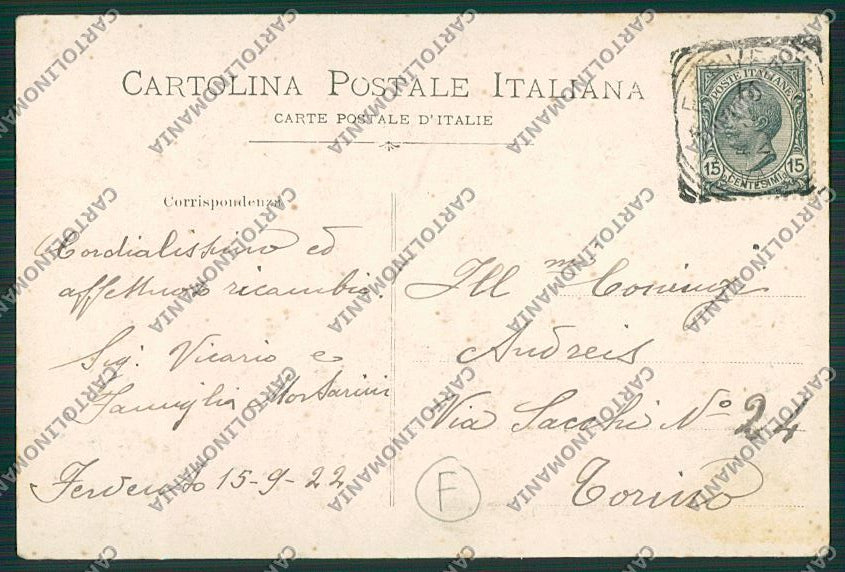 CARTOLINA POSTALE ITALIANA
CARTE POSTALE D'ITALIE
POSTE ITALIANE
15 CENTESIMI 15
Corrispondenza
Cordialissimo ed
affettuoso ricambio.
Sig. Vicario e
Famiglia Mortarini
15-9-22
Ill mi Coniugi
Andreis
Via Sacchi No 24
Torino
F
CARTOLINOMANIA